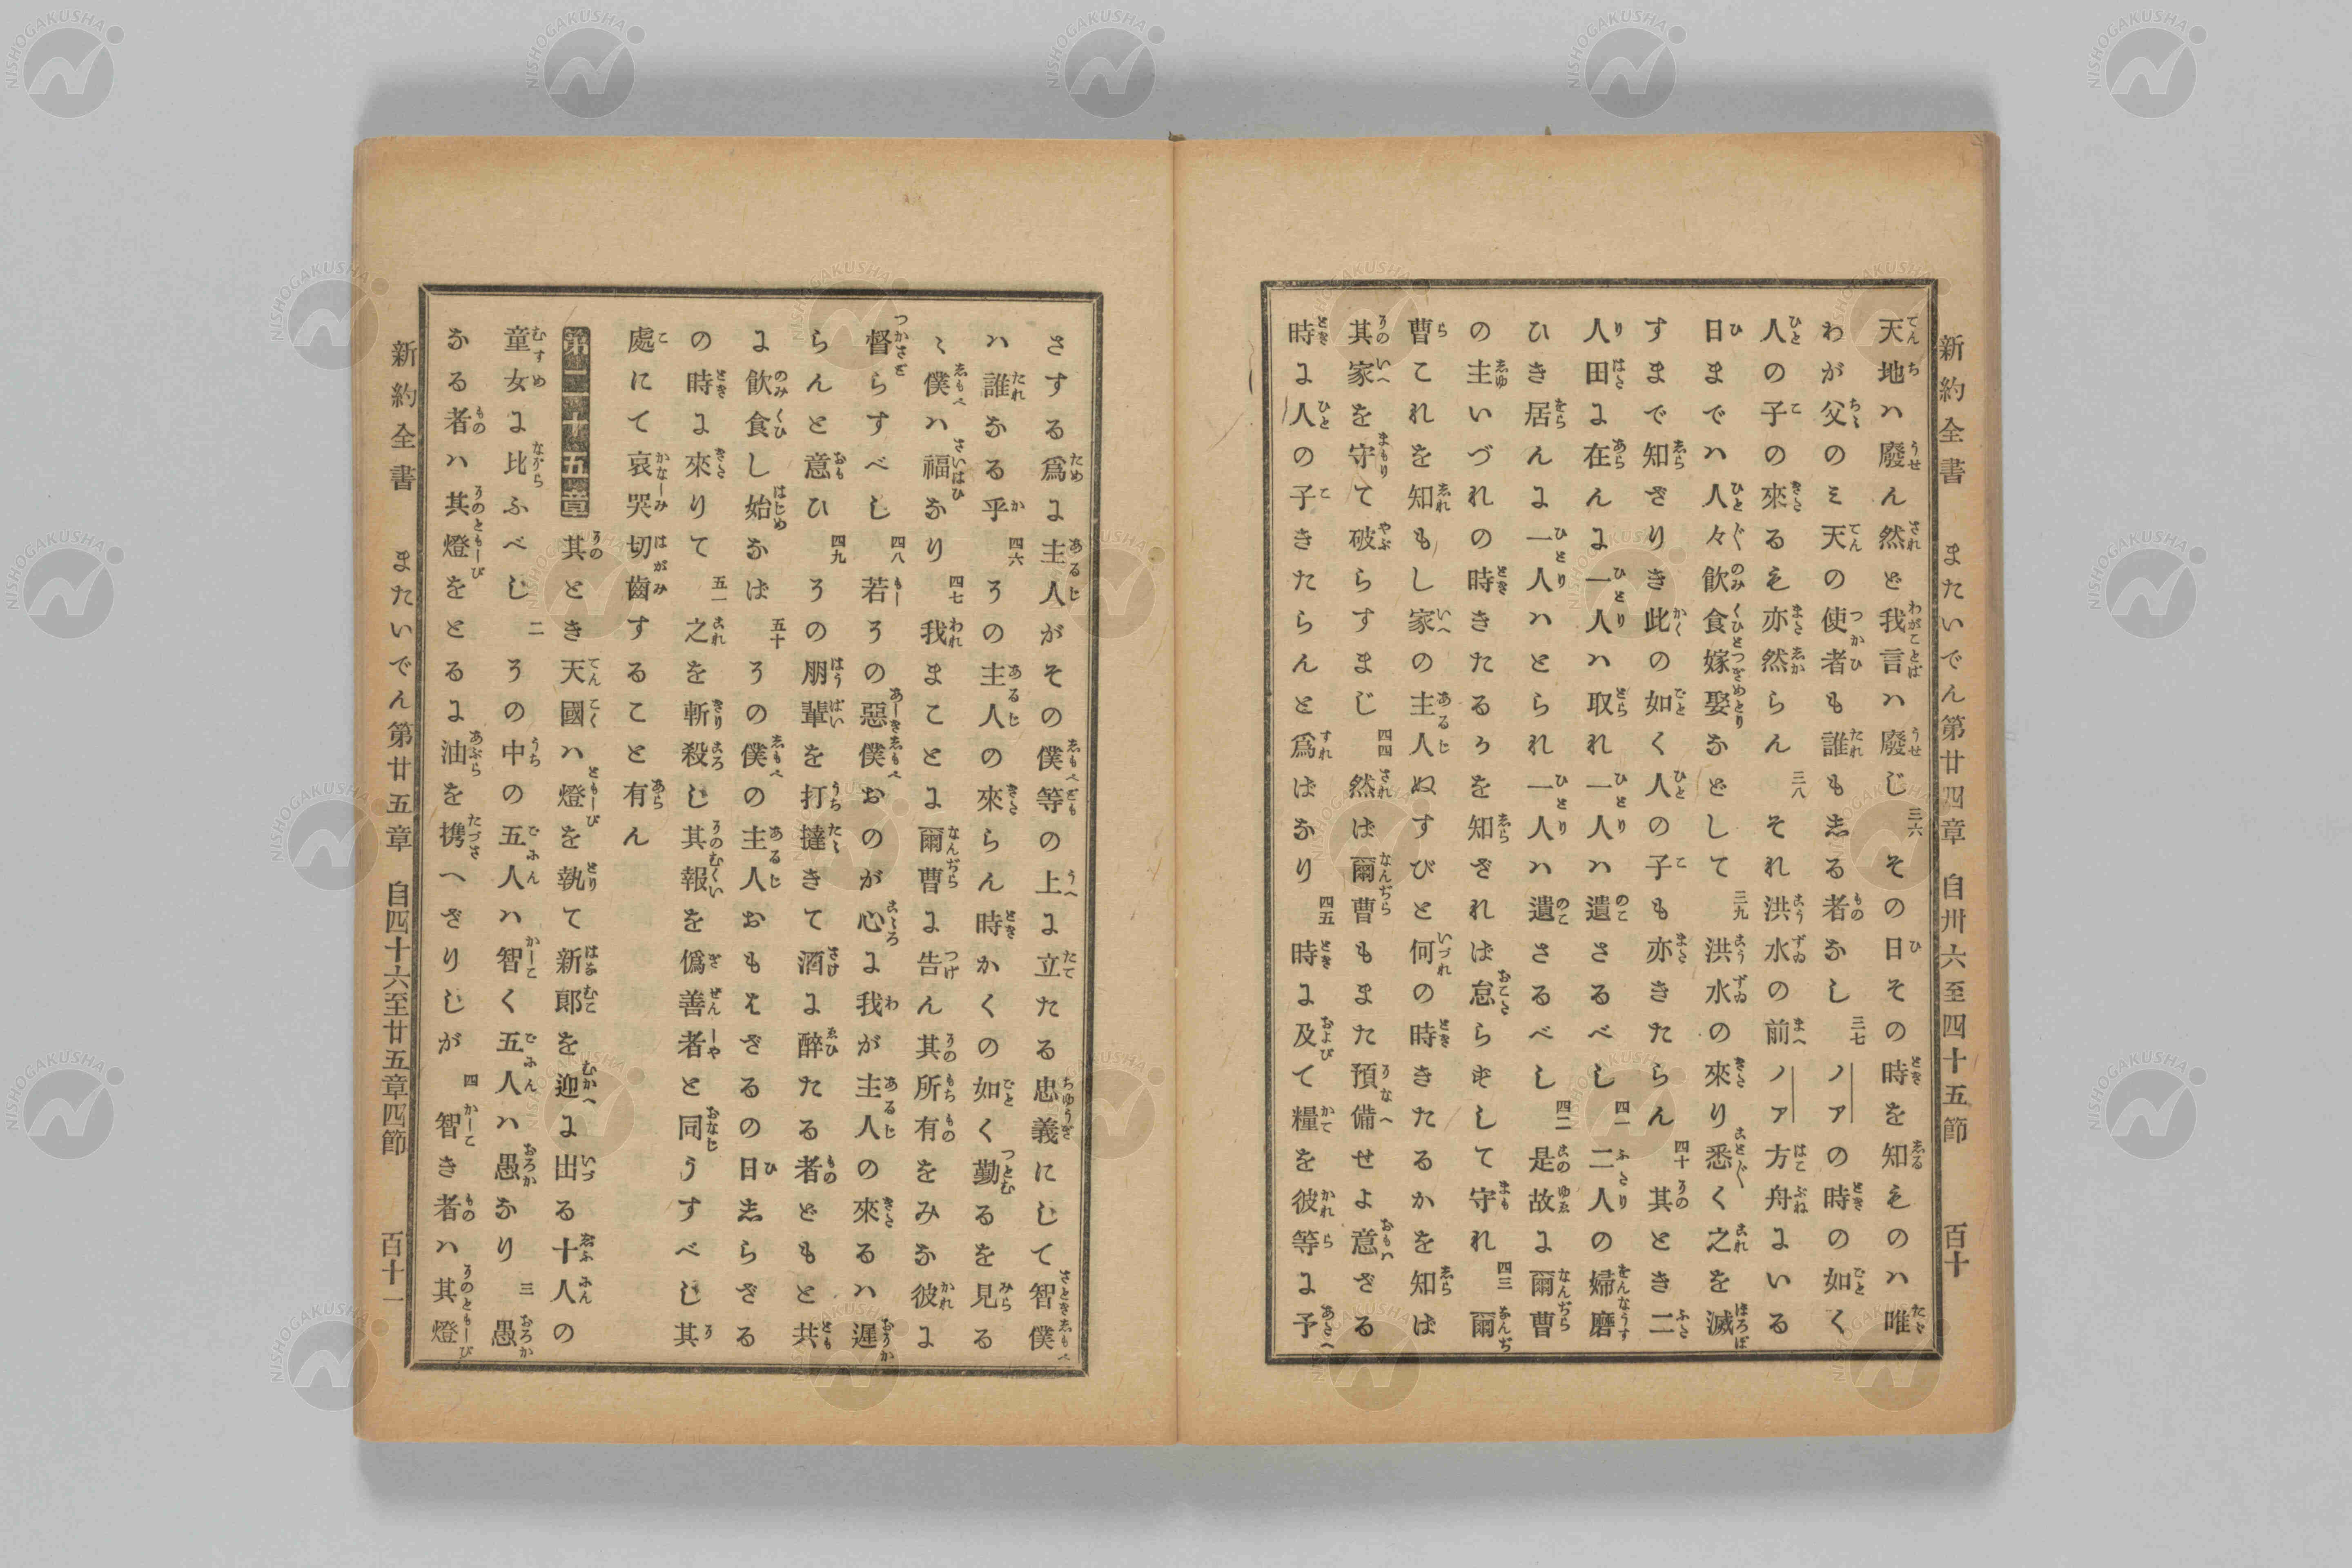 新約全書 またいでん第廿四章 自卅六至四十五節 百十
天地ハ廢ん然ど我言ハ廢じ 三六 その日その時を知ものハ唯
わが父のミ天の使者も誰も志る者なし 三七 ノアの時の如く
人の子の來るも亦然らん 三八 それ洪水の前ノア方舟にいる
日までハ人々飮食嫁娶などして 三九 洪水の來り悉く之を滅
すまで知ざりき此の如く人の子も亦きたらん 四十 其とき二
人田に在んに一人ハ取れ一人ハ遺さるべし 四一 二人の婦磨
ひき居んに一人ハとられ一人ハ遺さるべし 四二 是故に爾曹
の主いづれの時きたるかを知ざれば怠らずして守れ 四三 爾
曹これを知もし家の主人ぬすびと何の時きたるかを知ば
其家を守て破らすまじ 四四 然ば爾曹もまた預備せよ意ざる
時に人の子きたらんと爲ばなり 四五 時に及て糧を彼等に予
さする爲に主人がその僕等の上に立たる忠義にして智僕
ハ誰なる乎 四六 その主人の來らん時かくの如く勤るを見る
〻僕ハ福なり 四七 我まことに爾曹に告ん其所有をみな彼に
督らすべし 四八 若その惡僕おのが心に我が主人の來るハ遲
らんと意ひ 四九 その朋輩を打撻きて酒に醉たる者どもと共
に飮食し始なば 五十 その僕の主人おもはざるの日志らざる
の時に來りて 五一 之を斬殺し其報を僞善者と同うすべし其
處にて哀哭切齒すること有ん
第二十五章 其とき天國ハ燈を執て新郎を迎に出る十人の
童女に比ふべし 二 その中の五人ハ智く五人ハ愚なり 三 愚
なる者ハ其燈をとるに油を携へざりしが 四 智き者ハ其燈
新約全書 またいでん第廿五章 自四十六至廿五章四節 百十一
NISHOGAKUSHA